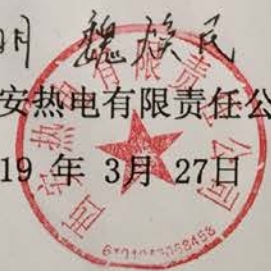 明 魏族民
安热电有限责任公
19 年 3月 27日
西安热电有限责任公司